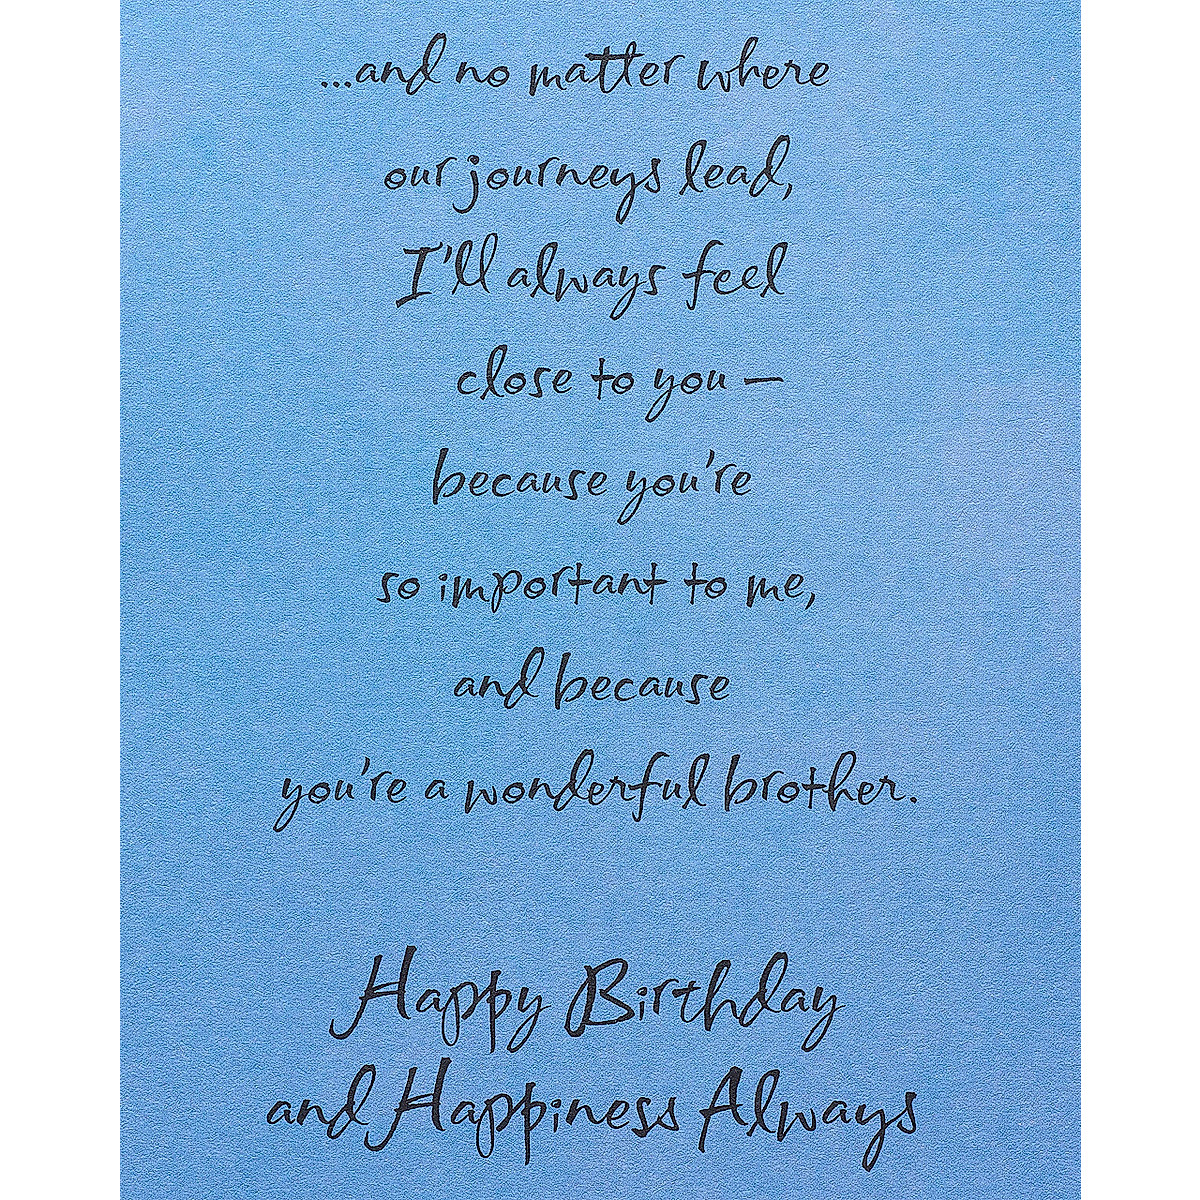 ...and no matter where
our journeys lead,
I'll always feel
close to you —
because you're
so important to me,
and because
you're a wonderful brother.
Happy Birthday
and Happiness Always